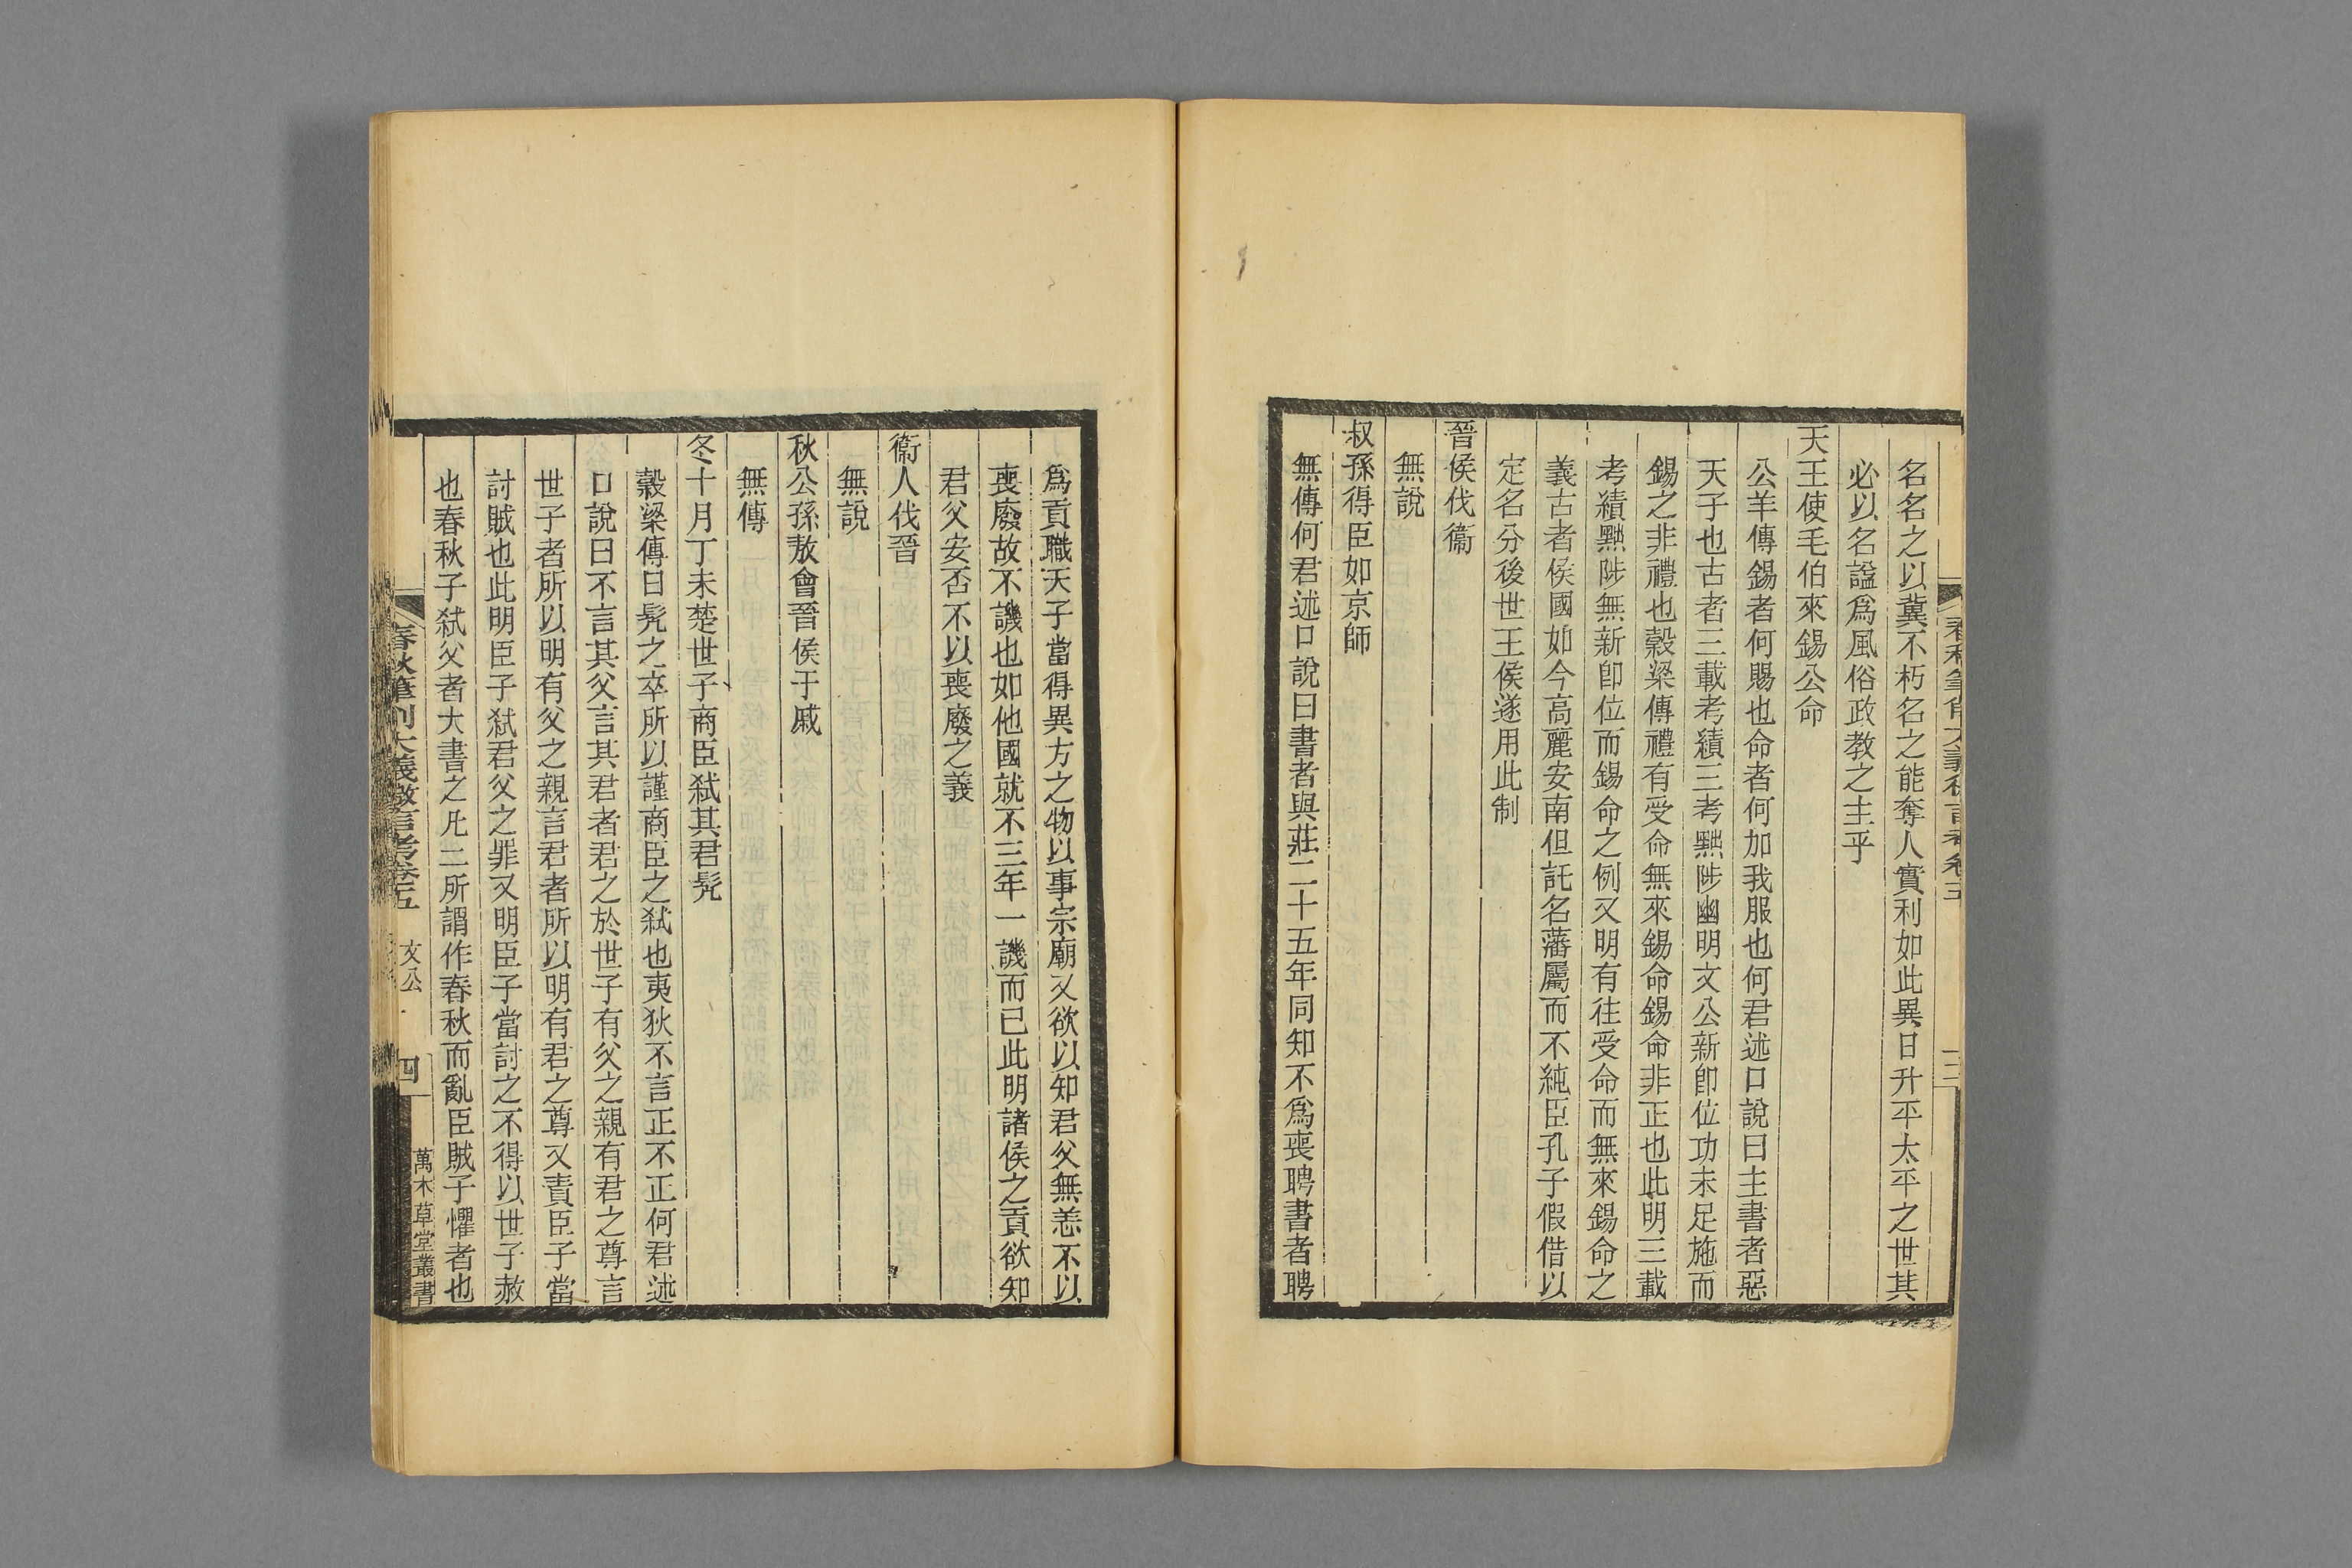 名名之以冀不朽名之能奪人實利如此異日升平太平之世其
必以名諡爲風俗政教之主乎
天王使毛伯來錫公命
公羊傳錫者何賜也命者何加我服也何君述口說曰主書者惡
天子也古者三載考績三考黜陟幽明文公新卽位功未足施而
錫之非禮也穀梁傳禮有受命無來錫命錫命非正也此明三載
考績黜陟無新卽位而錫命之例又明有往受命而無來錫命之
義古者侯國如今高麗安南但託名藩屬而不純臣孔子假借以
定名分後世王侯遂用此制
晉侯伐衞
無說
叔孫得臣如京師
無傳何君述口說曰書者與莊二十五年同知不爲喪聘書者聘
爲貢職天子當得異方之物以事宗廟又欲以知君父無恙不以
喪廢故不譏也如他國就不三年一譏而已此明諸侯之貢欲知
君父安否不以喪廢之義
衞人伐晉
無說
秋公孫敖會晉侯于戚
無傳
冬十月丁未楚世子商臣弒其君髠
穀梁傳曰髠之卒所以謹商臣之弒也夷狄不言正不正何君述
口說曰不言其父言其君者君之於世子有父之親有君之尊言
世子者所以明有父之親言君者所以明有君之尊又責臣子當
討賊也此明臣子弒君父之罪又明臣子當討之不得以世子赦
也春秋子弒父者大書之凡二所謂作春秋而亂臣賊子懼者也
春秋筆削大義微言考卷五 文公 四 萬木草堂叢書